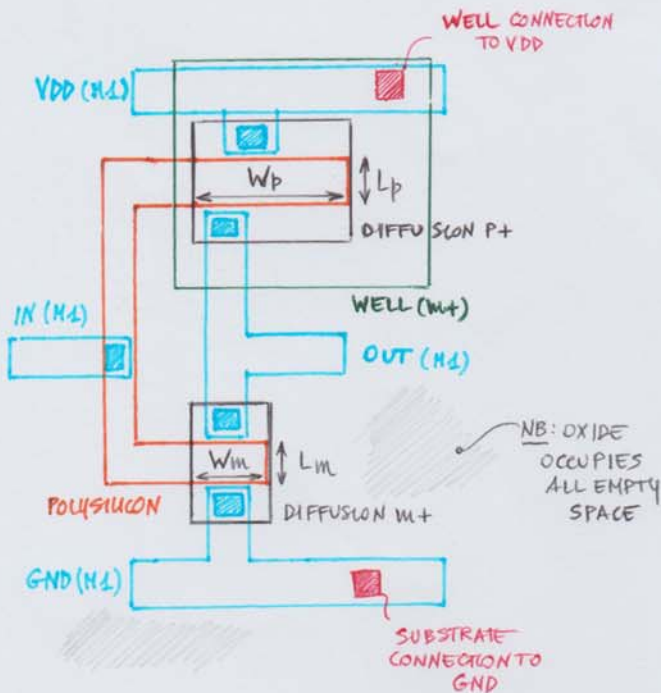 WELL CONNECTION
TO VDD
VDD (M1)
Wp
Lp
DIFFUSION P+
WELL (m+)
IN (M1)
OUT (M1)
NB: OXIDE
OCCUPIES
ALL EMPTY
SPACE
Wm
Lm
POLYSILICON
DIFFUSION m+
GND (M1)
SUBSTRATE
CONNECTION TO
GND